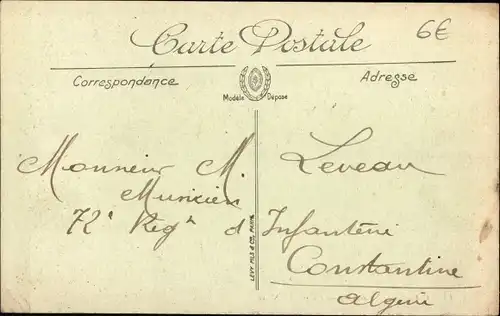 6€
Carte Postale
Correspondance
Adresse
Modèle Déposé
Monsieur M. Leveau
Musicien
72e Regt d'Infanterie
Constantine
Algérie
LEVY FILS & Cie, PARIS